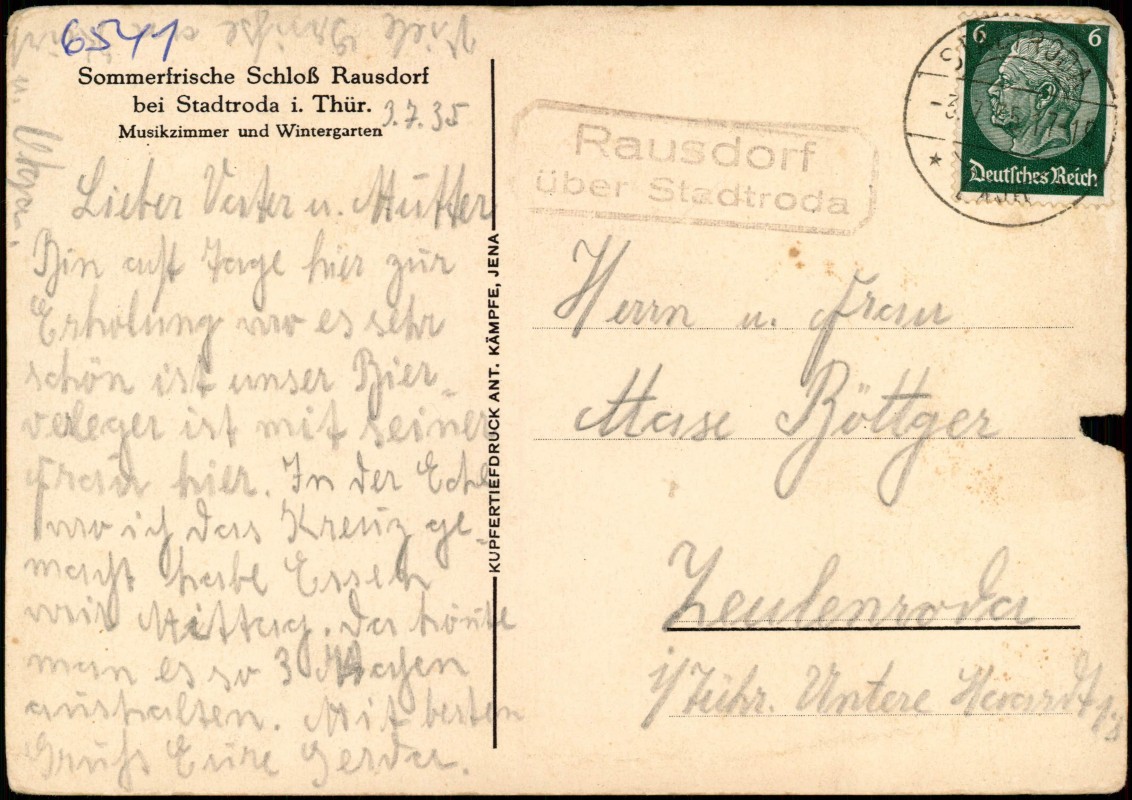 6541
Viele Grüße an
u.
Sommerfrische Schloß Rausdorf
bei Stadtroda i. Thür.
Musikzimmer und Wintergarten
3.7.35
Lieber Vater u. Mutter
Bin auf Tage hier zur
Erholung wo es sehr
schön ist unser Bier-
verleger ist mit seiner
Frau hier. In der Ecke
wo ich das Kreuz ge-
macht habe Essen
wir Mittag. Da könnte
man es so 3 Wochen
aushalten. Mit besten
Gruß Eure Gerda.
KUPFERTIEFDRUCK ANT. KÄMPFE, JENA
Rausdorf
über Stadtroda
STADTRODA
6 6
Deutsches Reich
Herrn u. Frau
Böttger
Zeulenroda
i/Thür. Untere